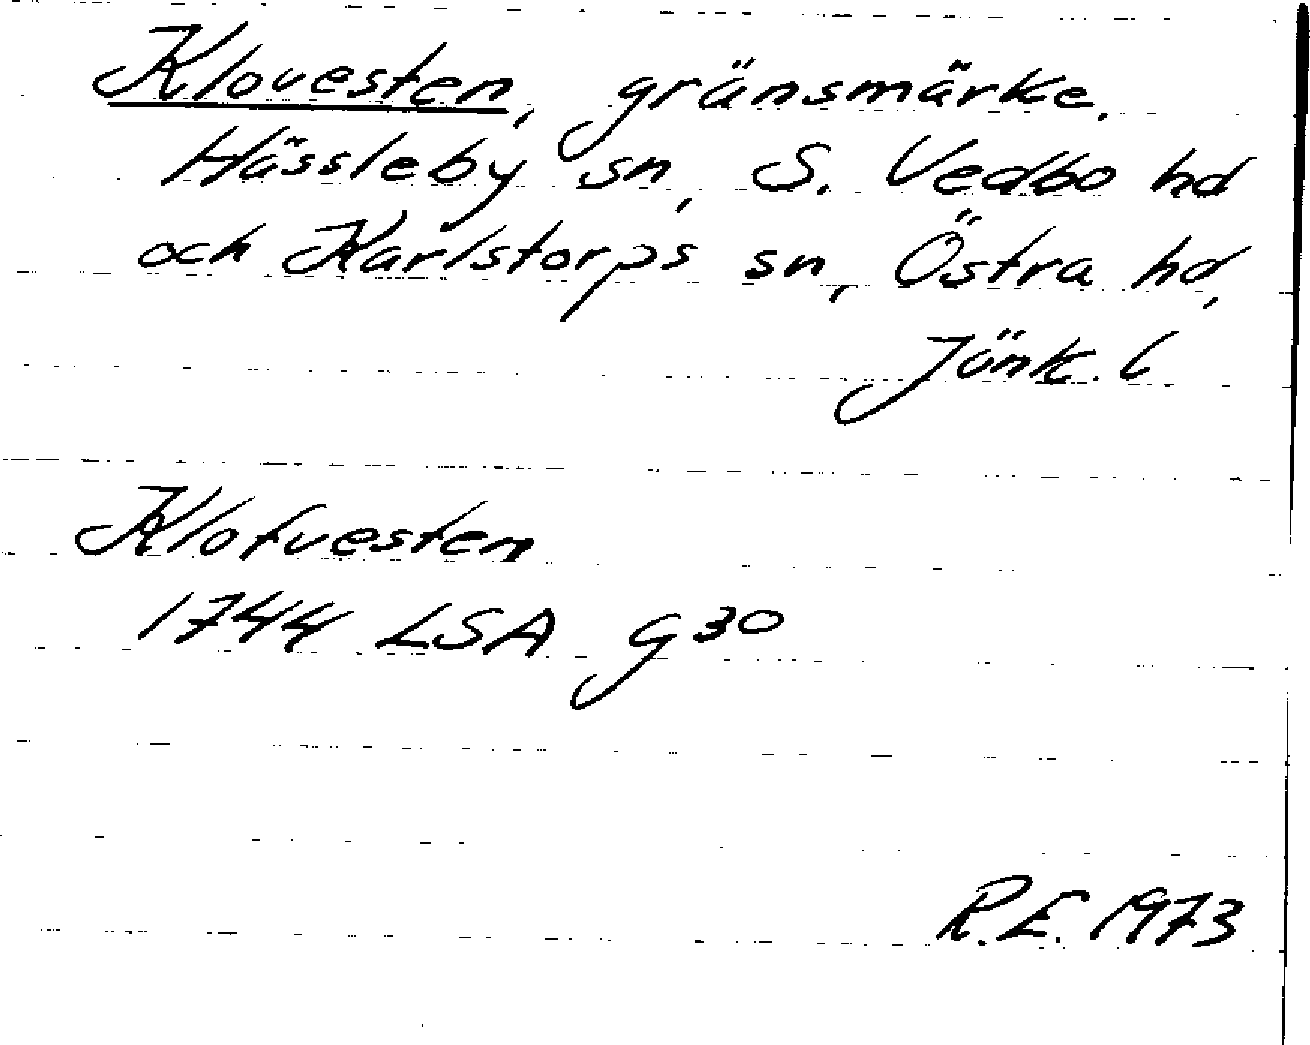 Klovesten, gränsmärke.
Hässleby sn, S. Vedbo hd
och Karlstorps sn, Östra hd,
Jönk. l
Klofvesten
1744 LSA G30
R.E. 1973